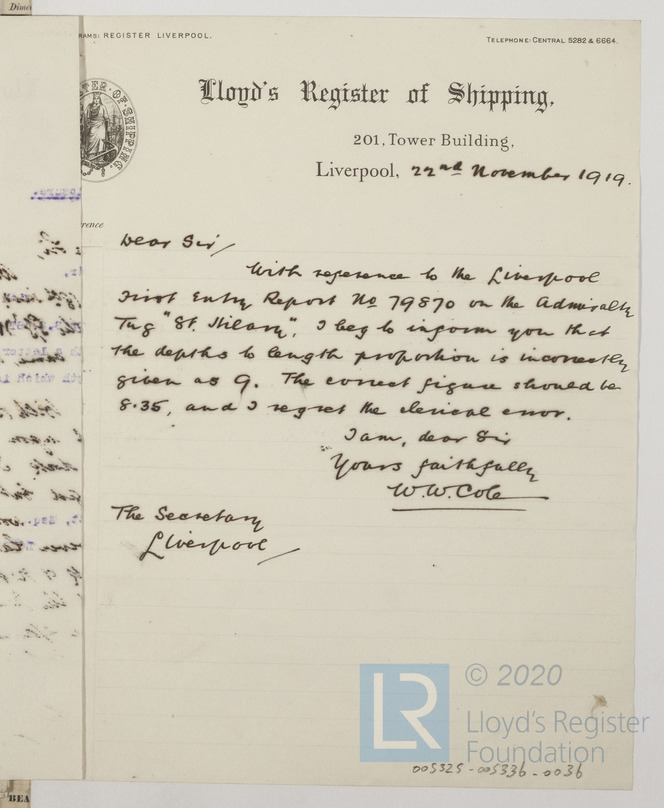 RAMS: REGISTER LIVERPOOL.
TELEPHONE: CENTRAL 5282 & 6664.
Lloyd's Register of Shipping,
201, Tower Building,
Liverpool, 22nd November 1919.
rence
Dear Sir/
With reference to the Liverpool
First Entry Report No 79870 on the Admiralty
Tug "St. Hilary", I beg to inform you that
the depths to length proportion is incorrectly
given as 9. The correct figure should be
8.35, and I regret the clerical error.
I am, dear Sir
Yours faithfully
W.W. Cole
The Secretary
Liverpool
LR © 2020
Lloyd's Register
Foundation
005325-005336-0036
BEA